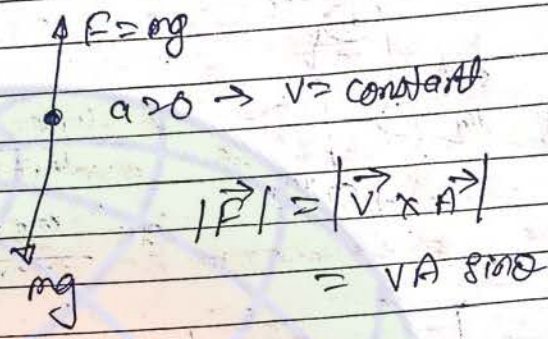 F = mg
a=0 → V= constant
|F⃗| = |V⃗ × A⃗|
= VA sinθ
mg